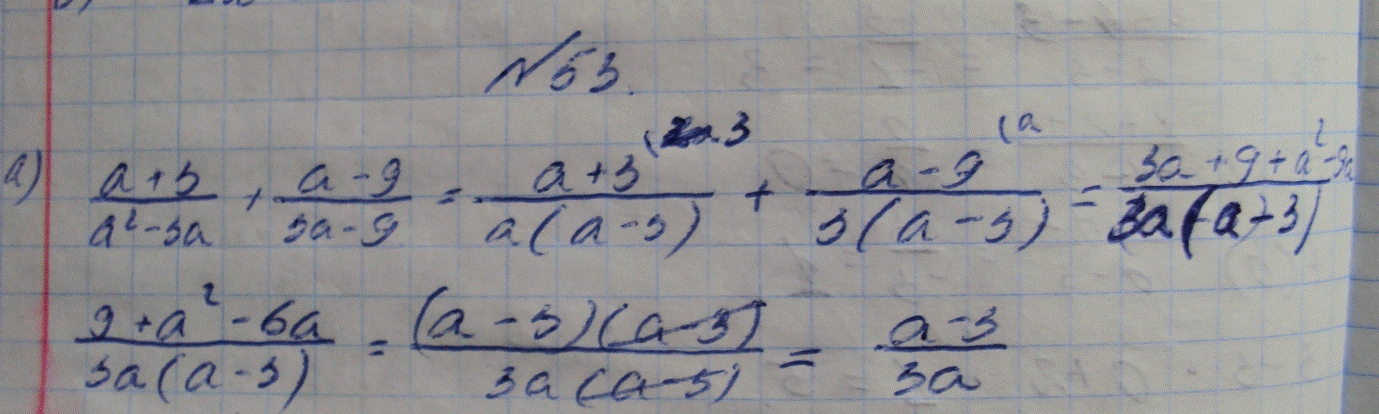 №53.
а) (a+3)/(a²-3a) + (a-9)/(3a-9) = (a+3)/(a(a-3)) (3 + (a-9)/(3(a-3)) (a = (3a+9+a²-9a)/(3a(a-3))
(9+a²-6a)/(3a(a-3)) = ((a-3)(a-3))/(3a(a-3)) = (a-3)/(3a)